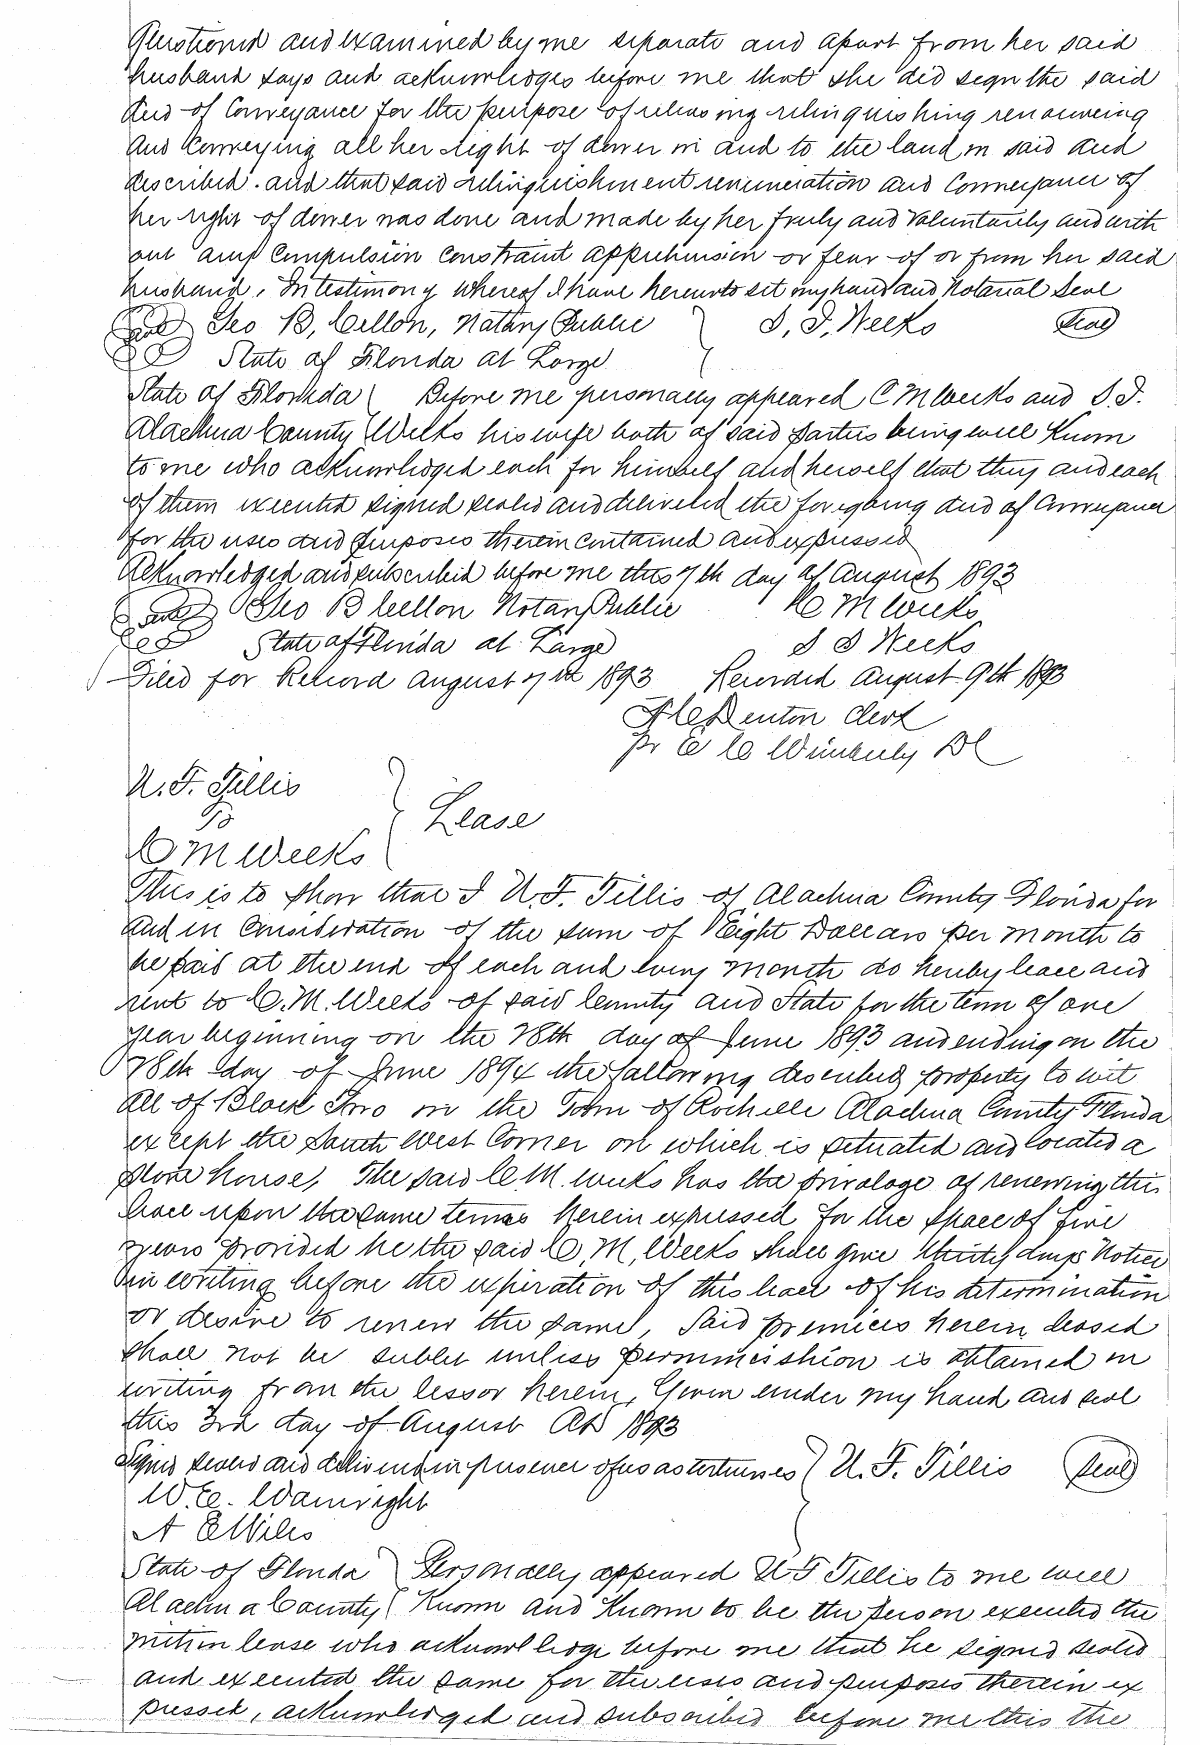 questioned and examined by me separate and apart from her said
husband says and acknowledges before me that she did sign the said
deed of Conveyance for the purpose of releasing relinquishing renouncing
and Conveying all her right of dower in and to the land in said deed
described. and that said relinquishment renunciation and Conveyance of
her right of dower was done and made by her freely and Voluntarily and with
out any Compulsion Constraint apprehension or fear of or from her said
husband. In testimony whereof I have hereunto set my hand and Notarial Seal
Seal Geo B. Cellon, Notary Public } S, I, Weeks Seal
State of Florida at Large
State of Florida ( Before me personally appeared C M Weeks and S. I.
Alachua County ( Weeks his wife both of said parties being well Known
to me who acknowledged each for himself and herself that they and each
of them executed signed sealed and delivered the foregoing deed of Conveyance
for the uses and purposes therein contained and expressed
Acknowledged and subscribed before me this 7th day of August 1893
Seal Geo B Cellon Notary Public C M Weeks
State of Florida at Large S I Weeks
Filed for Record August 7th 1893 Recorded August 9th 1893
H C Denton Clerk
pr E C Wimberly DC
U. F. Tillis
To } Lease
C M Weeks
This is to show that I U. F. Tillis of Alachua County Florida for
and in Consideration of the sum of Eight Dollars per month to
be paid at the end of each and every month do hereby lease and
rent to C. M. Weeks of said County and State for the term of one
year beginning on the 28th day of June 1893 and ending on the
28th day of June 1894 the following described property to wit
All of Block Two in the Town of Rochelle Alachua County Florida
except the South West Corner on which is situated and located a
store house, The said C. M. Weeks has the privalage of renewing this
lease upon the same terms herein expressed for the space of five
years provided he the said C. M. Weeks shall give thirty days Notice
in writing before the expiration of this lease of his determination
or desire to renew the same, Said premices herein leased
shall not be sublet unless permmisshion is obtained in
writing from the lessor herein, Given under my hand and seal
this 3rd day of August AD 1893
Signed sealed and delivered in presence of us as witnesses } U. F. Tillis Seal
W. E. Wainright
A E Wiles
State of Florida } Personally appeared U F Tillis to me well
Alachua County ( Known and Known to be the person executed the
within lease who acknowledge before me that he signed sealed
and executed the same for the uses and purposes therein ex
pressed, acknowledged and subscribed before me this the